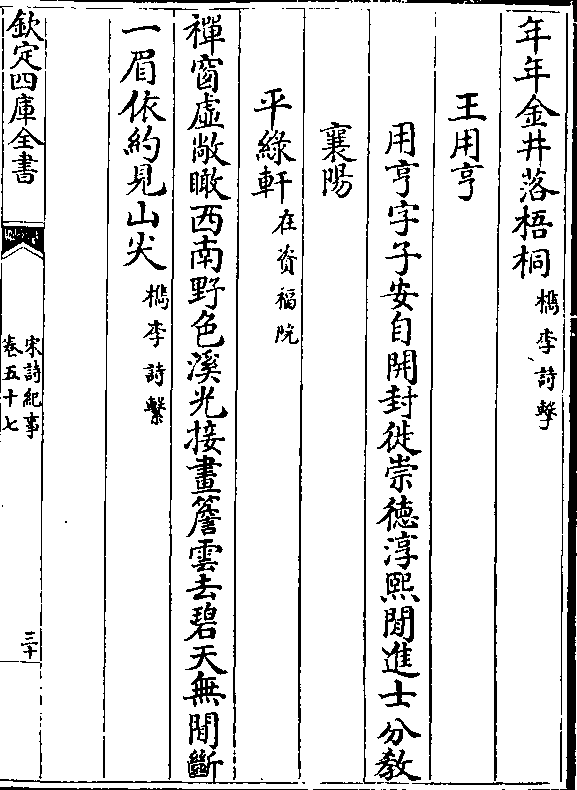 年年金井落梧桐檇李詩繫
王用亨
用亨字子安自開封徙崇德淳熙間進士分教
襄陽
平綠軒在資福院
禪窗虛敞瞰西南野色溪光接畫簷雲去碧天無間斷
一眉依約見山尖檇李詩繫
欽定四庫全書
宋詩紀事
卷五十七
三十